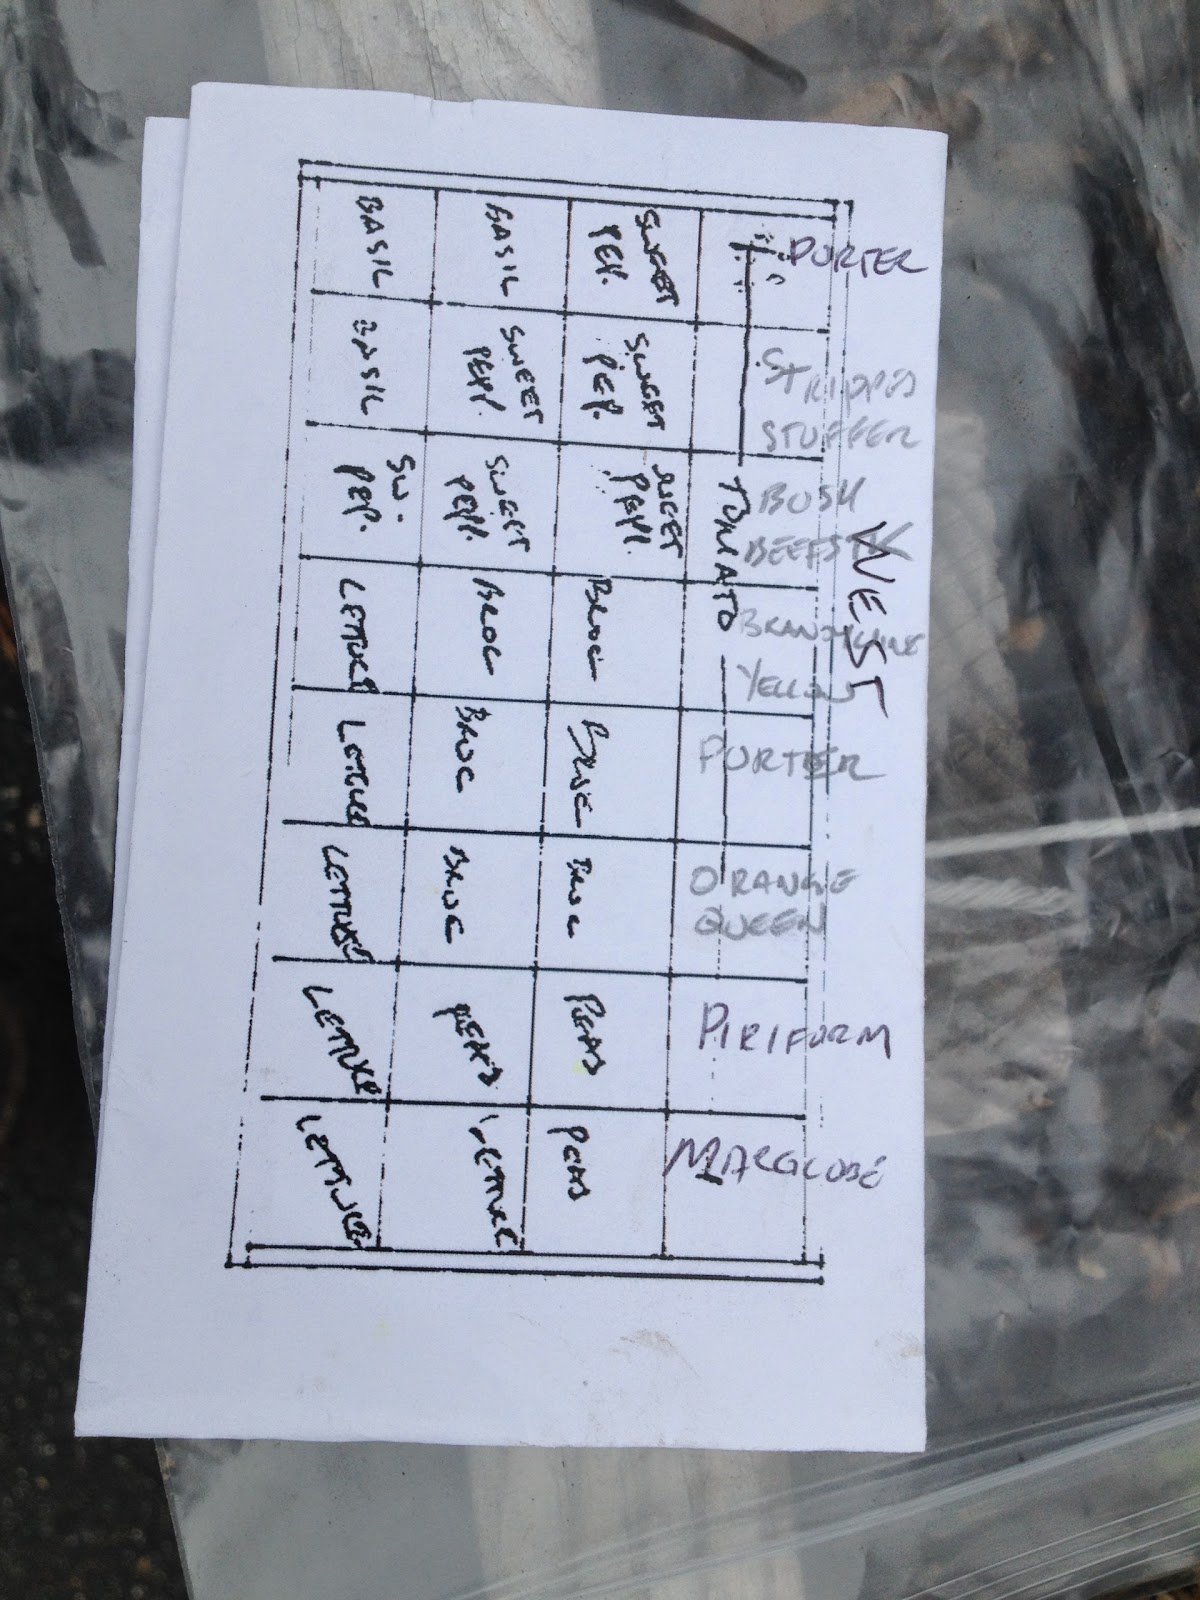 WEST
PORTER
STRIPPED
STUFFER
BUSH
BEEFSTK
BRANDYWINE
YELLOW
PORTER
ORANGE
QUEEN
PIRIFORM
MARGLOBE
TOMATO
SWEET
PEP.
SWEET
PEP.
SWEET
PEPP.
BROC
BROC
BROC
PEAS
PEAS
BASIL
SWEET
PEPP.
SWEET
PEPP.
BROC
BROC
BROC
PEAS
LETTUCE
BASIL
BASIL
SW.
PEP.
LETTUCE
LETTUCE
LETTUCE
LETTUCE
LETTUCE